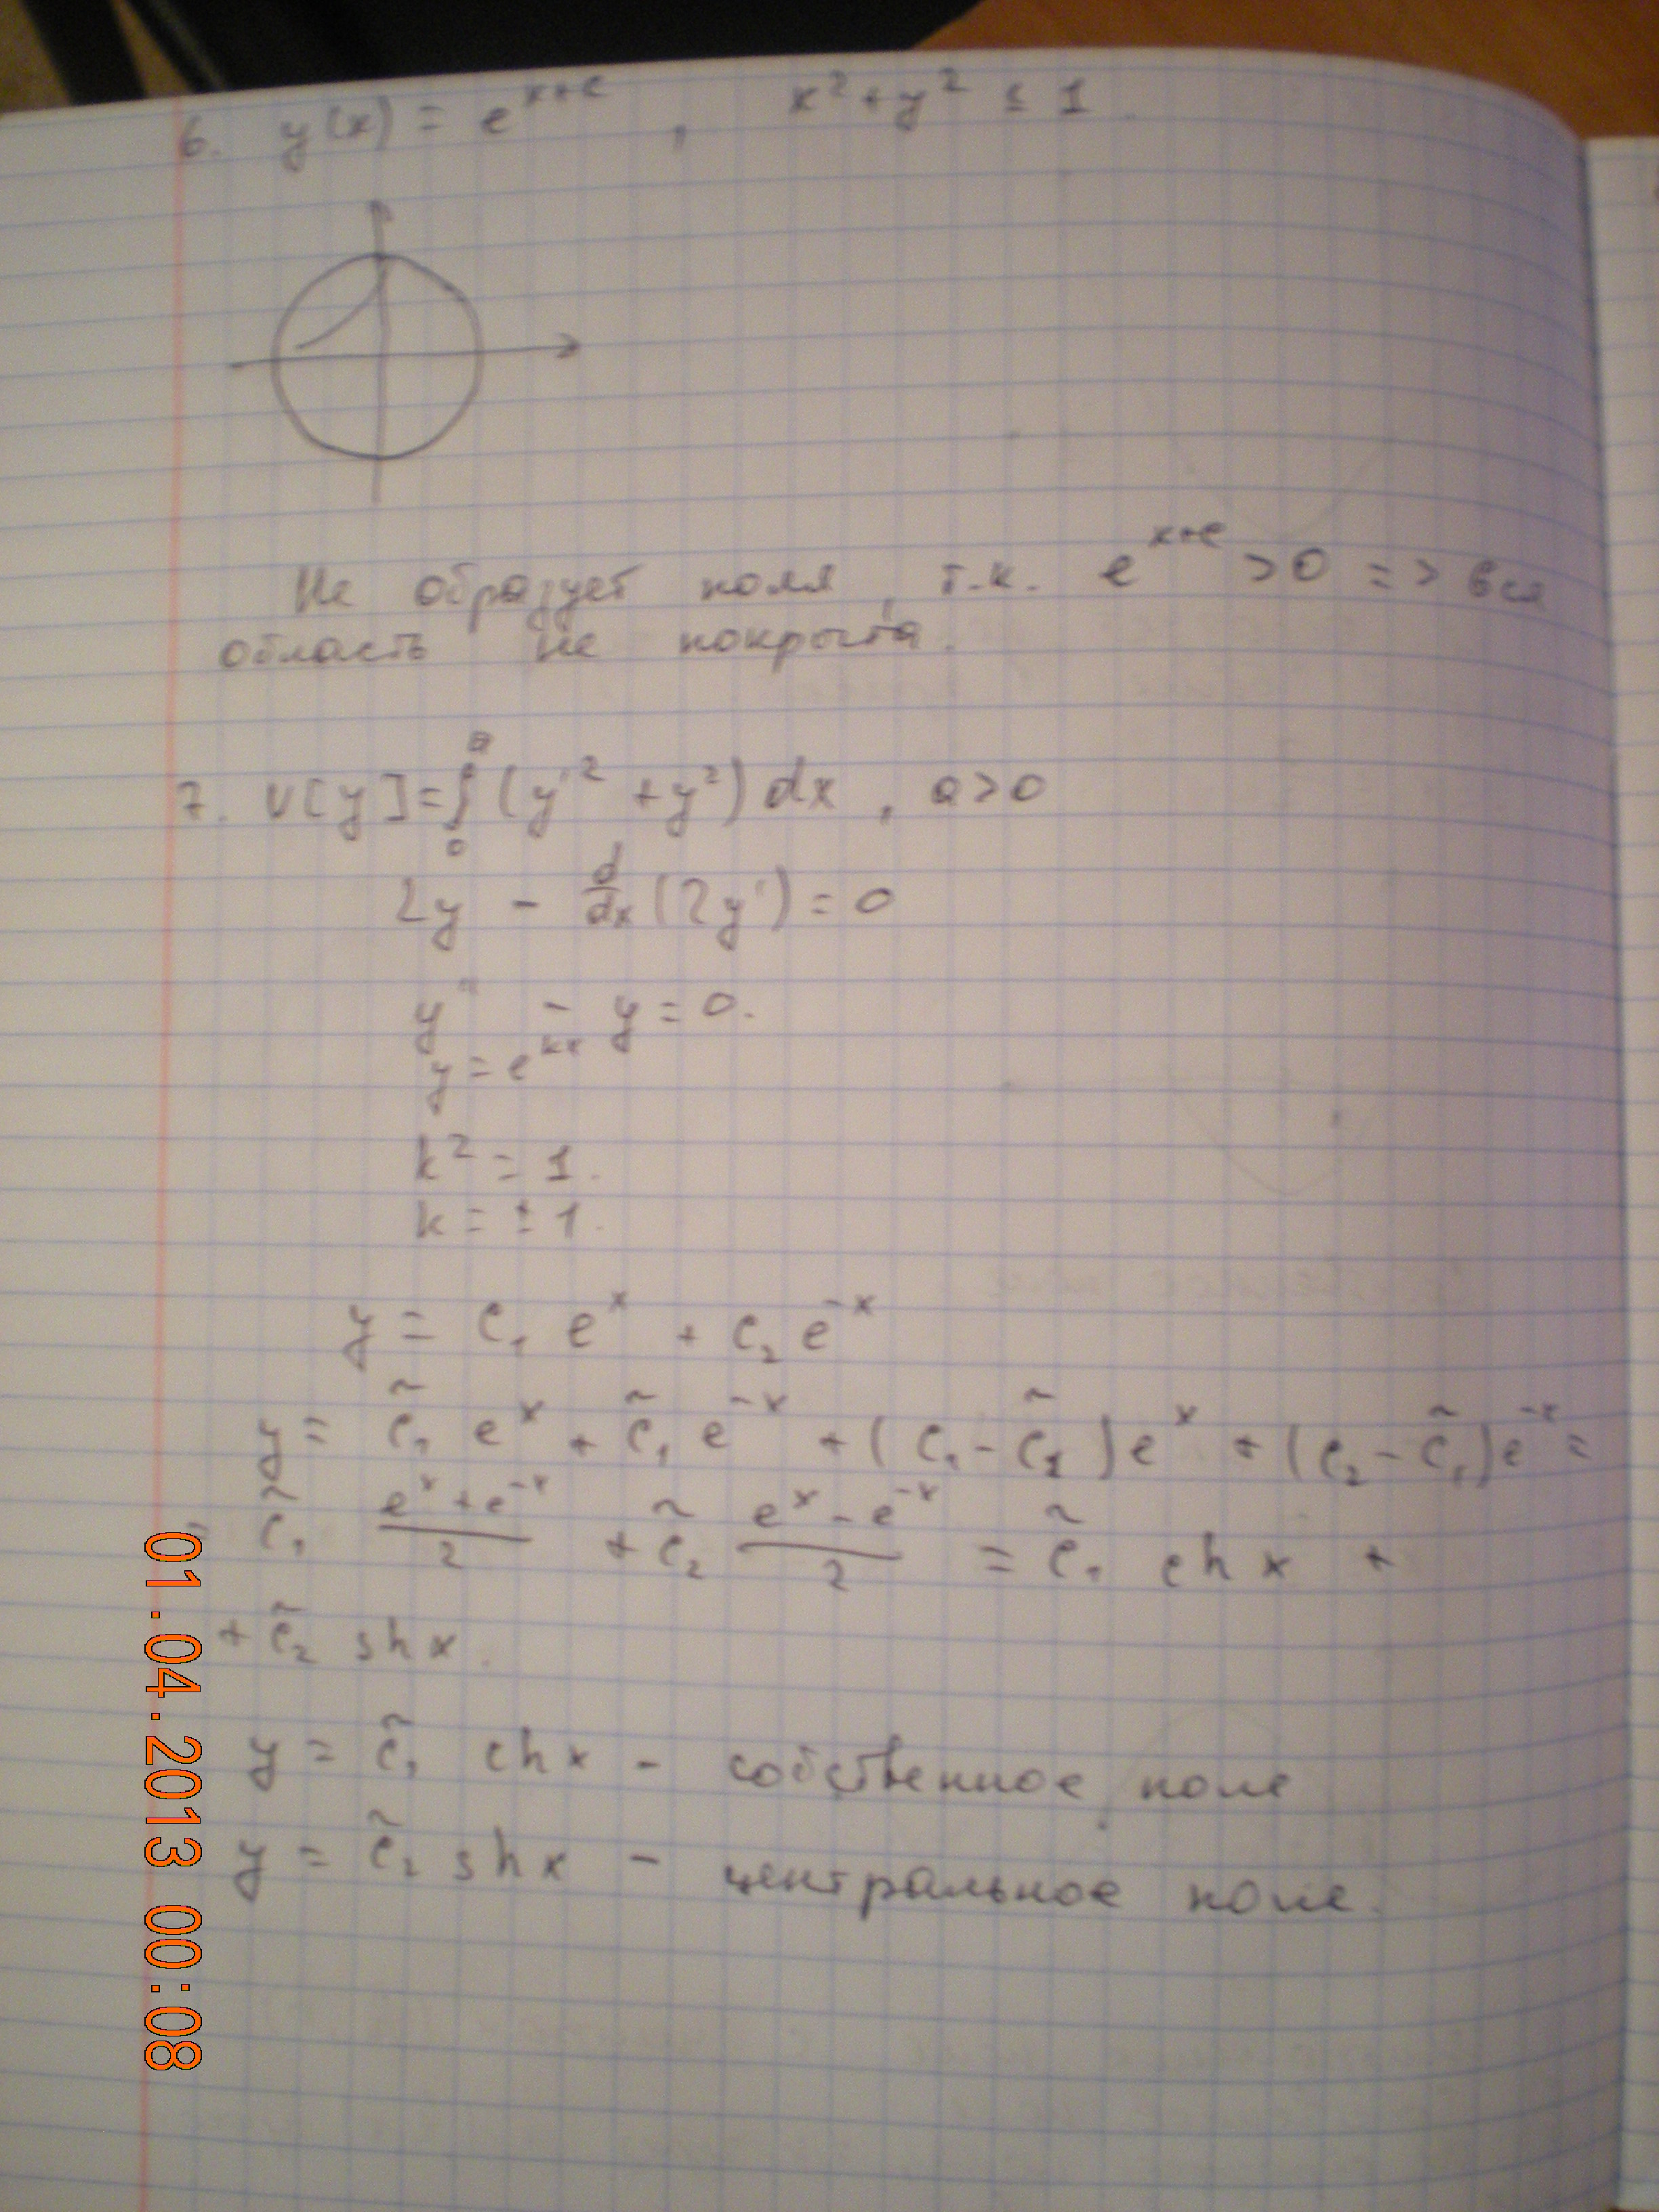 6. y(x) = e^{x+c} , x² + y² ≤ 1.
Не образует поля, т.к. e^{x+c} > 0 => вся
область не покрыта.
7. V[y] = ∫₀ᵃ (y'² + y²) dx , a > 0
2y - d/dx (2y') = 0
y'' - y = 0.
y = e^{kx}
k² = 1.
k = ± 1.
y = C₁ e^x + C₂ e^{-x}
y = C̃₁ e^x + C̃₁ e^{-x} + (C₁ - C̃₁) e^x + (C₂ - C̃₁) e^{-x} =
= C̃₁ (e^x + e^{-x})/2 + C̃₂ (e^x - e^{-x})/2 = C̃₁ ch x +
+ C̃₂ sh x.
y = C̃₁ ch x - собственное поле
y = C̃₂ sh x - центральное поле.
01.04.2013 00:08